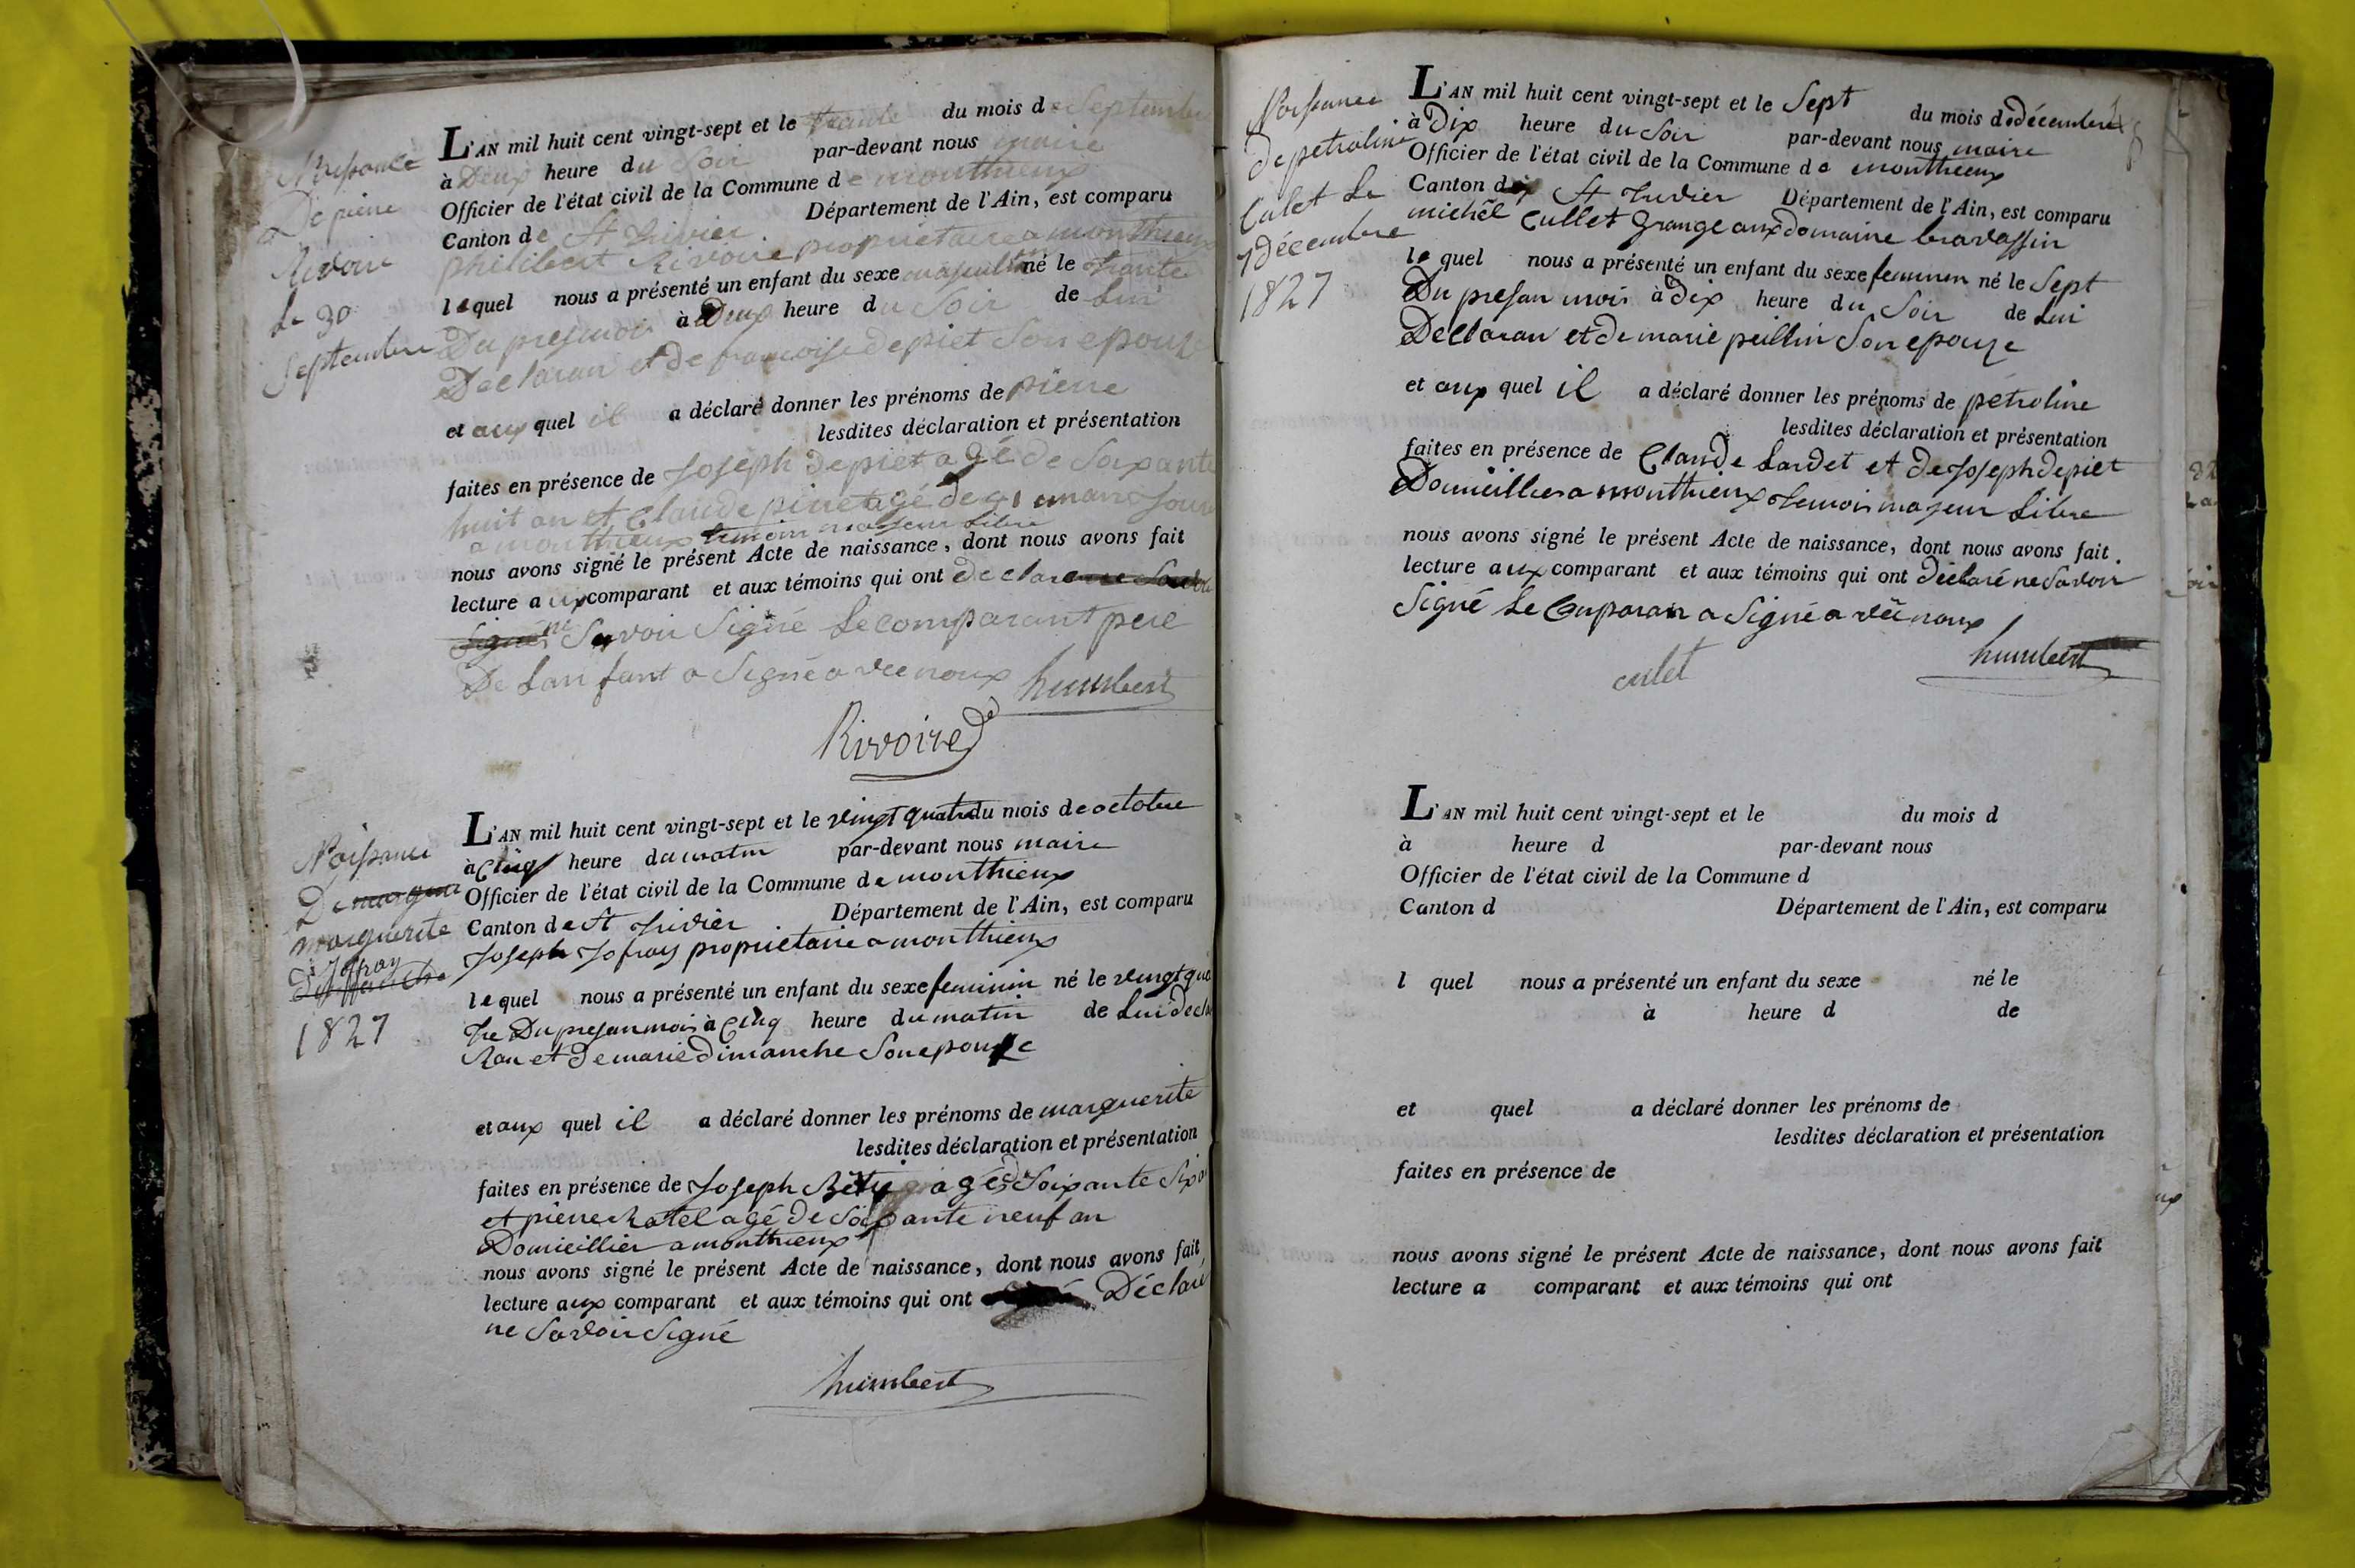 Naissance
De pierre
Rivoire
Le 30
Septembre
L'AN mil huit cent vingt-sept et le trante du mois de Septembre
à Deux heure du Soir par-devant nous maire
Officier de l'état civil de la Commune de monthieux
Canton de St trivier Département de l'Ain, est comparu
philibert Rivoire propriétaire a monthieux
lequel nous a présenté un enfant du sexe masculin né le trante
Du presmois à Deux heure du Soir de Lui
Declaran et de francoise depiet Son epouze
et aux quel il a déclaré donner les prénoms de pierre
lesdites déclaration et présentation
faites en présence de Joseph depiet agé de Soixante
huit an et Claude pinet agé de
a monthieux temoin majeur Libre
nous avons signé le présent Acte de naissance, dont nous avons fait
lecture aux comparant et aux témoins qui ont declare
Signé ne Savoir Signé Le comparant pere
De Lanfant a Signé a vec nous humbert
Rivoire
Naissance
De
marguerite
Jofray
1827
L'AN mil huit cent vingt-sept et le vingt quatre du mois de octobre
à Cinq heure du matin par-devant nous maire
Officier de l'état civil de la Commune de monthieux
Canton de St trivier Département de l'Ain, est comparu
Joseph Jofray propriétaire a monthieux
lequel nous a présenté un enfant du sexe feminin né le vingt qua
tre Du presan mois à Cinq heure du matin de Lui decla
Ran et De marie Dimanche Son epouze
et aux quel il a déclaré donner les prénoms de marguerite
lesdites déclaration et présentation
faites en présence de Joseph agé de Soixante Six an
et pierre Ratel agé de Soixante neuf an
Domicillier a monthieux
nous avons signé le présent Acte de naissance, dont nous avons fait
lecture aux comparant et aux témoins qui ont Déclaré
ne Savoir Signé
humbert
Naissance
de petroline
Culet Le
7 Décembre
1827
L'AN mil huit cent vingt-sept et le Sept du mois de décembre
à Dix heure du Soir par-devant nous maire
Officier de l'état civil de la Commune de monthieux
Canton de St trivier Département de l'Ain, est comparu
michel Cullet Grangé aux domaine bravassin
lequel nous a présenté un enfant du sexe feminen né le Sept
Du presan mois à dix heure du Soir de Lui
Declaran et de marie peillin Son epouze
et aux quel il a déclaré donner les prénoms de pétroline
lesdites déclaration et présentation
faites en présence de Claude Lardet et de Joseph depiet
Domicillier a monthieux temoin majeur Libre
nous avons signé le présent Acte de naissance, dont nous avons fait
lecture aux comparant et aux témoins qui ont déclaré ne Savoir
Signé Le Comparan a Signé a vec nous
culet humbert
L'AN mil huit cent vingt-sept et le du mois d
à heure d par-devant nous
Officier de l'état civil de la Commune d
Canton d Département de l'Ain, est comparu
l quel nous a présenté un enfant du sexe né le
à heure d de
et quel a déclaré donner les prénoms de
lesdites déclaration et présentation
faites en présence de
nous avons signé le présent Acte de naissance, dont nous avons fait
lecture a comparant et aux témoins qui ont